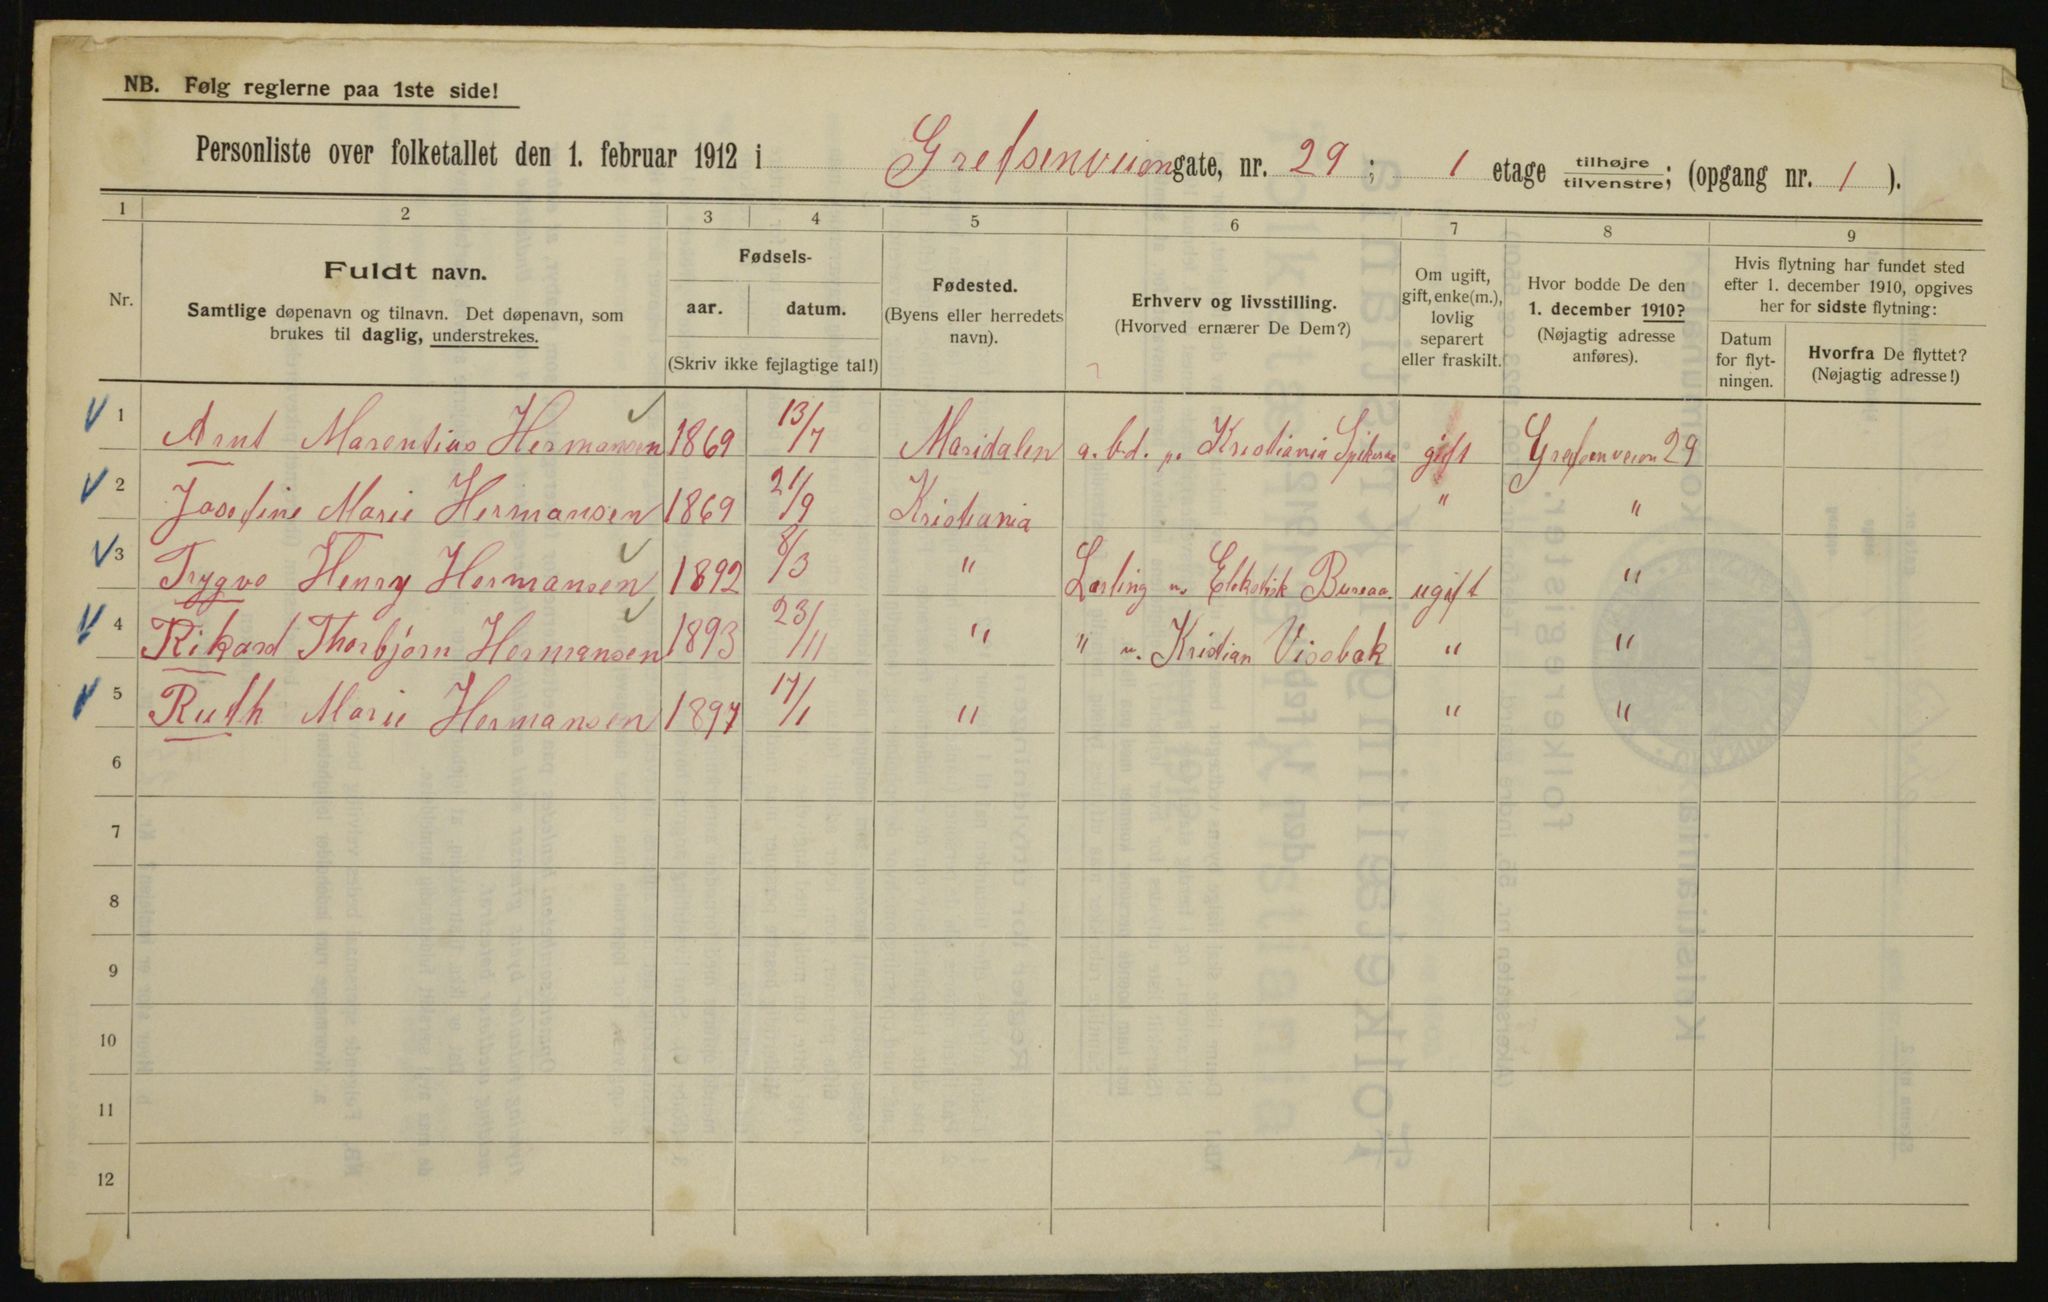 NB. Følg reglerne paa 1ste side!
Personliste over folketallet den 1. februar 1912 i Grefsenveien gate, nr. 29 ; 1 etage tilhøjre/tilvenstre; (opgang nr. 1 ).
1 2 3 4 5 6 7 8 9
Nr.
Fuldt navn.
Samtlige døpenavn og tilnavn. Det døpenavn, som
brukes til daglig, understrekes.
Fødsels-
aar. datum.
(Skriv ikke fejlagtige tal!)
Fødested.
(Byens eller herredets
navn).
Erhverv og livsstilling.
(Hvorved ernærer De Dem?)
Om ugift,
gift, enke(m.),
lovlig
separert
eller fraskilt.
Hvor bodde De den
1. december 1910?
(Nøjagtig adresse
anføres).
Hvis flytning har fundet sted
efter 1. december 1910, opgives
her for sidste flytning:
Datum
for flyt-
ningen.
Hvorfra De flyttet?
(Nøjagtig adresse!)
1 Arnt Marentius Hermansen 1869 13/7 Maridalen a.bd. p. Kristiania gift Grefsenveien 29
2 Josefine Marie Hermansen 1869 21/9 Kristiania " "
3 Trygve Henry Hermansen 1892 8/3 " Lærling v. Elektrisk Bureau ugift "
4 Rikard Thorbjørn Hermansen 1893 23/11 " " v. Kristian Vissbak " "
5 Ruth Marie Hermansen 1897 17/1 " " "
6
7
8
9
10
11
12